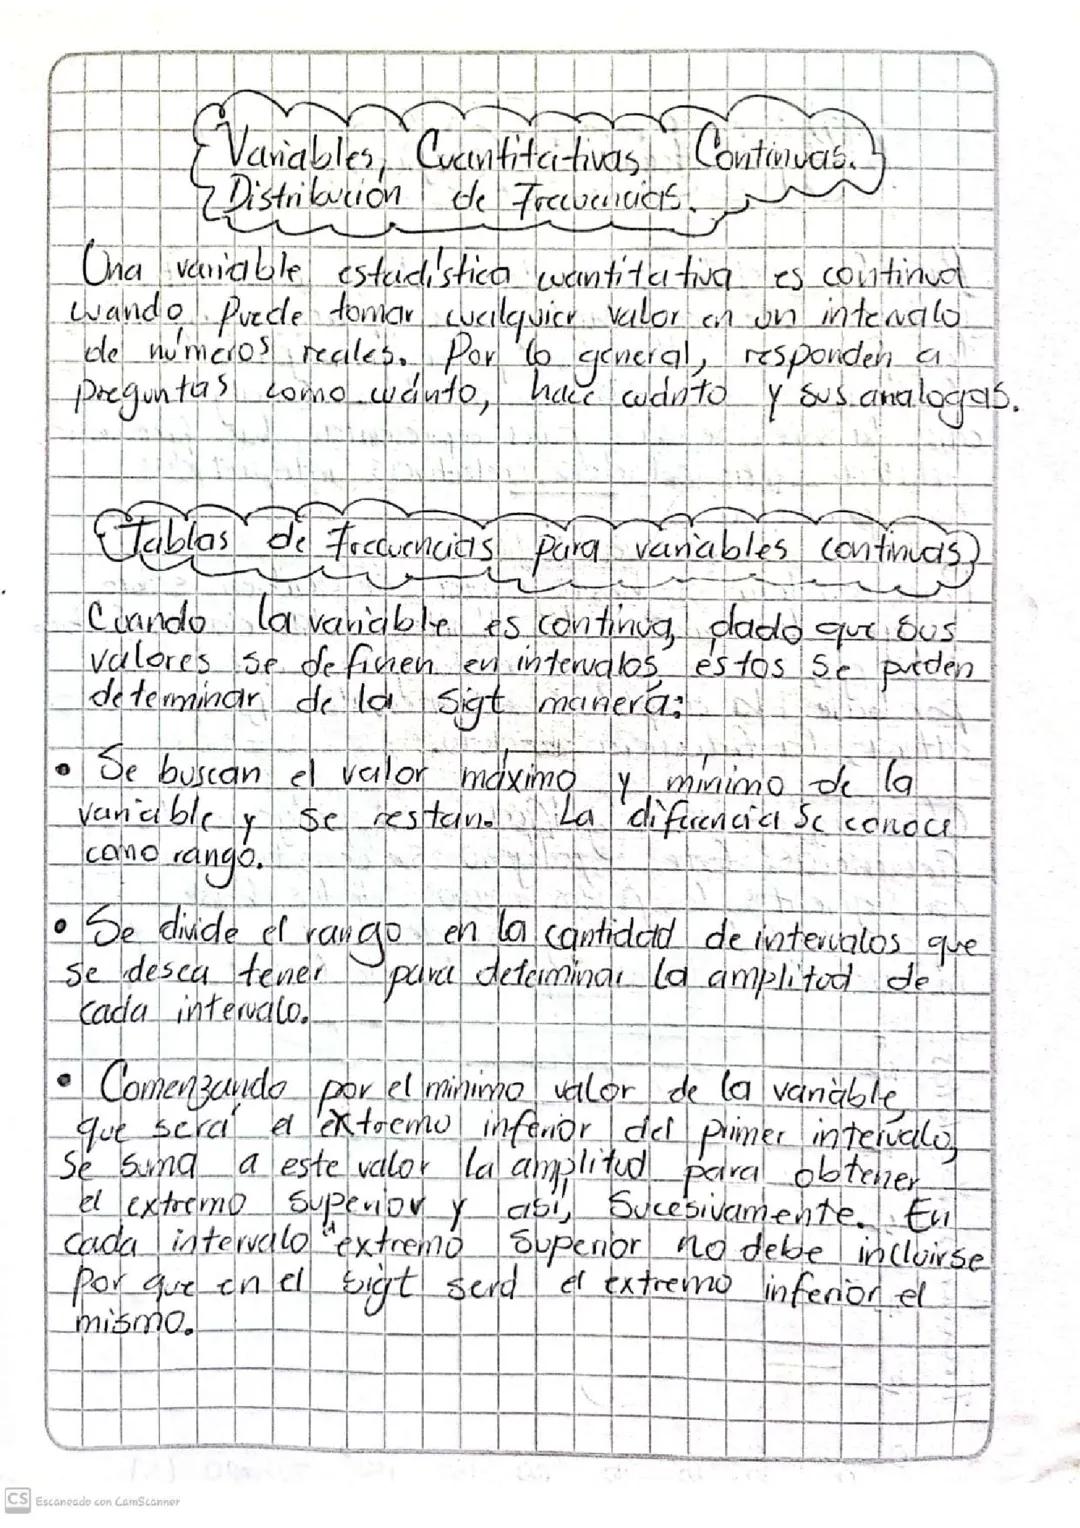 Variables, Cuantitativas Continuas.
Distribución de Frecuencias.
Una variable estadística cuantitativa es continua
cuando, puede tomar cualquier valor en un intervalo
de números reales. Por lo general, responden a
preguntas como cuánto, hace cuánto y sus analogas.
Tablas de frecuencias para variables continuas
Cuando la variable es continua, dado que sus
valores se definen en intervalos, estos se pueden
determinar de la sigt manera:
• Se buscan el valor máximo y mínimo de la
variable y se restan. La diferencia se conoce
como rango.
• Se divide el rango en la cantidad de intervalos que
se desea tener para determinar la amplitud de
cada intervalo.
• Comenzando por el minimo valor de la variable,
que será el extremo inferior del primer intervalo,
se suma a este valor la amplitud para obtener
el extremo superior y así, sucesivamente. En
cada intervalo "extremo superior no debe incluirse
por que en el sigt será el extremo inferior el
mismo.
CS Escaneado con CamScanner